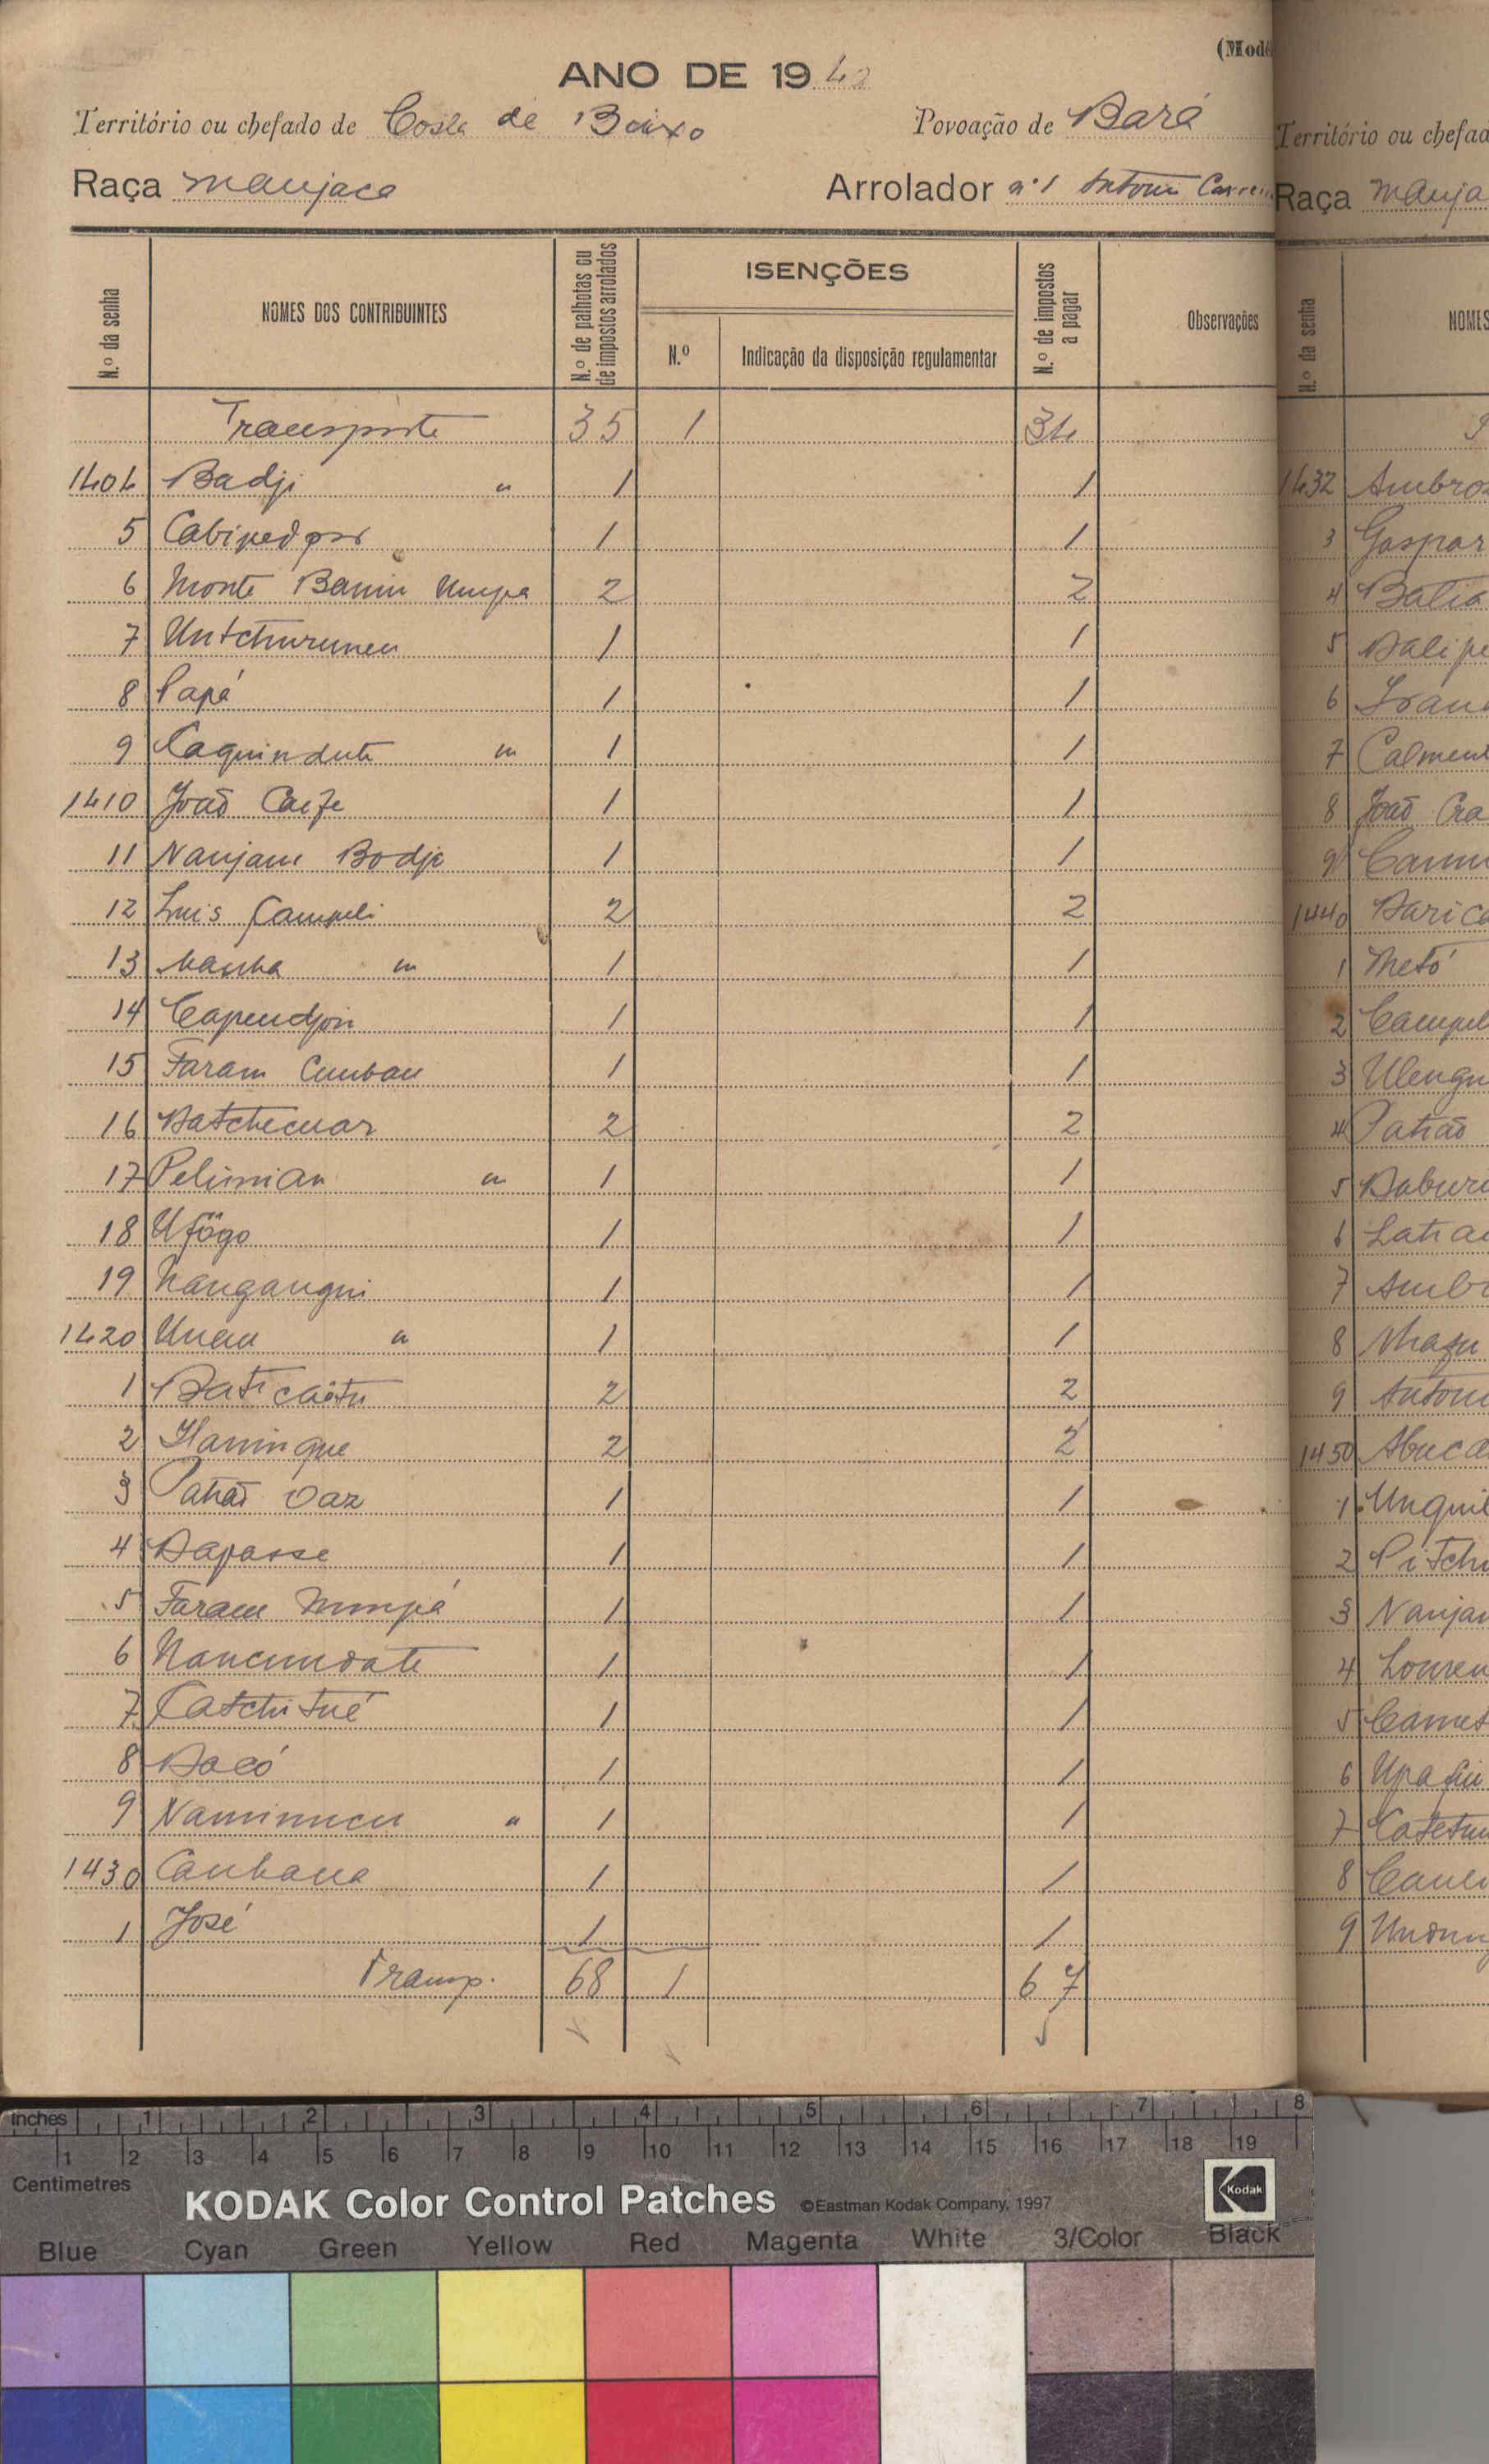 (Mod
ANO DE 19 42
Território ou chefado de Costa de Baixo Povoação de Bará
Raça Manjaca Arrolador nº 1 Antoni Carrei
N.º da senha
NOMES DOS CONTRIBUINTES
N.º de palhotas ou de impostos arrolados
ISENÇÕES
N.º
Indicação da disposição regulamentar
N.º de impostos a pagar
Observações
Transporte 35 1 34
1404 Badji " 1 1
5 1 1
6 Monte Banin Umpa 2 2
7 Untchurunen 1 1
8 Papá 1 1
9 Caquindute " 1 1
1410 João Caife 1 1
11 Nanjam Bodje 1 1
12 Luis Campeli 2 2
13 Nanha " 1 1
14 Capendjon 1 1
15 Faram Cumbau 1 1
16 Datchecuar 2 2
17 Pelimian " 1 1
18 Ufögo 1 1
19 Nangangui 1 1
1420 Unau " 1 1
1 2 2
2 2 2
3 Patrão Vaz 1 1
4 Dapasse 1 1
5 Faram Numpá 1 1
6 Nancundate 1 1
7 Catchitué 1 1
8 Dacó 1 1
9 " 1 1
1430 Canhana 1 1
1 José 1 1
Transp. 68 1 67
Território ou chefad
Raça Manja
N.º da senha
NOMES
1432 Ambroz
3 Gaspar
4 Batia
5 Dalipe
6
7 Calmen
8 João Cra
9
1440 Darica
1 Metó
2 Campel
3 Ulengu
4 Patrão
5 Daburi
6
7 Ambr
8
9 Antoni
1450 Abuca
1 Unquil
2 Pitchi
3 Nanjam
4 Louren
5 Camet
6
7
8
9
inches 1 2 3 4 5 6 7 8
1 2 3 4 5 6 7 8 9 10 11 12 13 14 15 16 17 18 19
Centimetres
KODAK Color Control Patches ©Eastman Kodak Company, 1997 Kodak
Blue Cyan Green Yellow Red Magenta White 3/Color Black